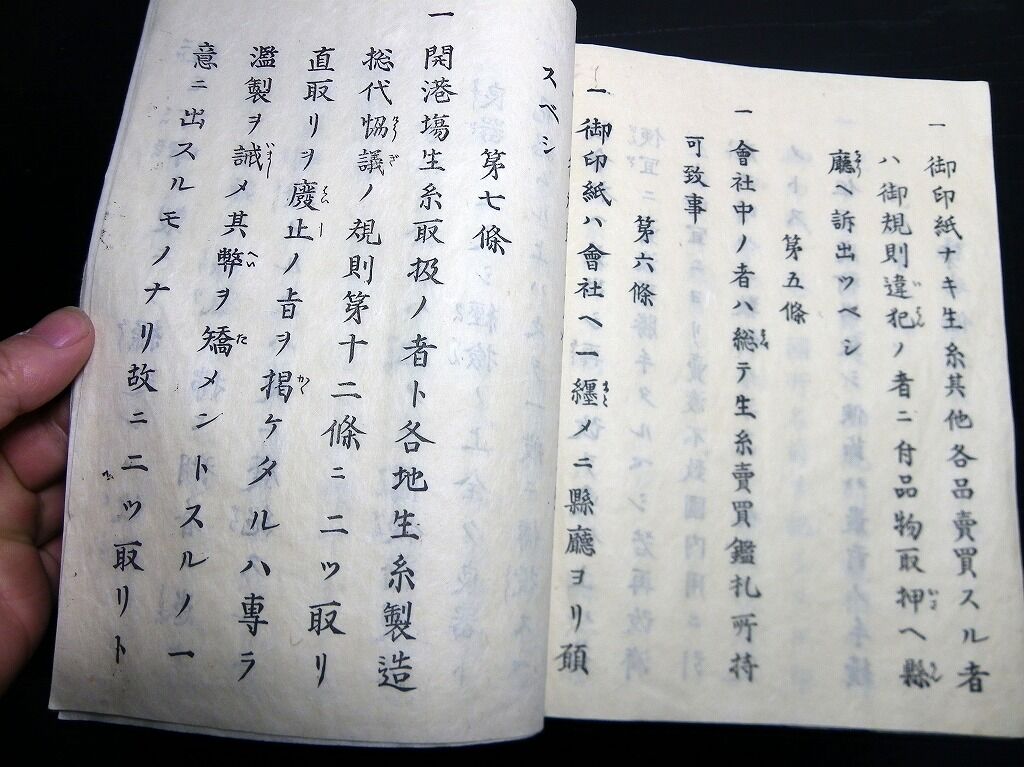 一 御印紙ナキ生糸其他各品賣買スル者
ハ御規則違犯ノ者ニ付品物取押ヘ縣
廳ヘ訴出ツベシ
第五條
一 會社中ノ者ハ総テ生糸賣買鑑札所持
可致事
第六條
一 御印紙ハ會社ヘ一纏メニ縣廳ヨリ願
スベシ
第七條
一 開港塲生糸取扱ノ者ト各地生糸製造
総代協議ノ規則第十二條ニ二ツ取リ
直取リヲ廢止ノ旨ヲ掲ケタルハ專ラ
濫製ヲ誡メ其弊ヲ矯メントスルノ一
意ニ出スルモノナリ故ニ二ツ取リト